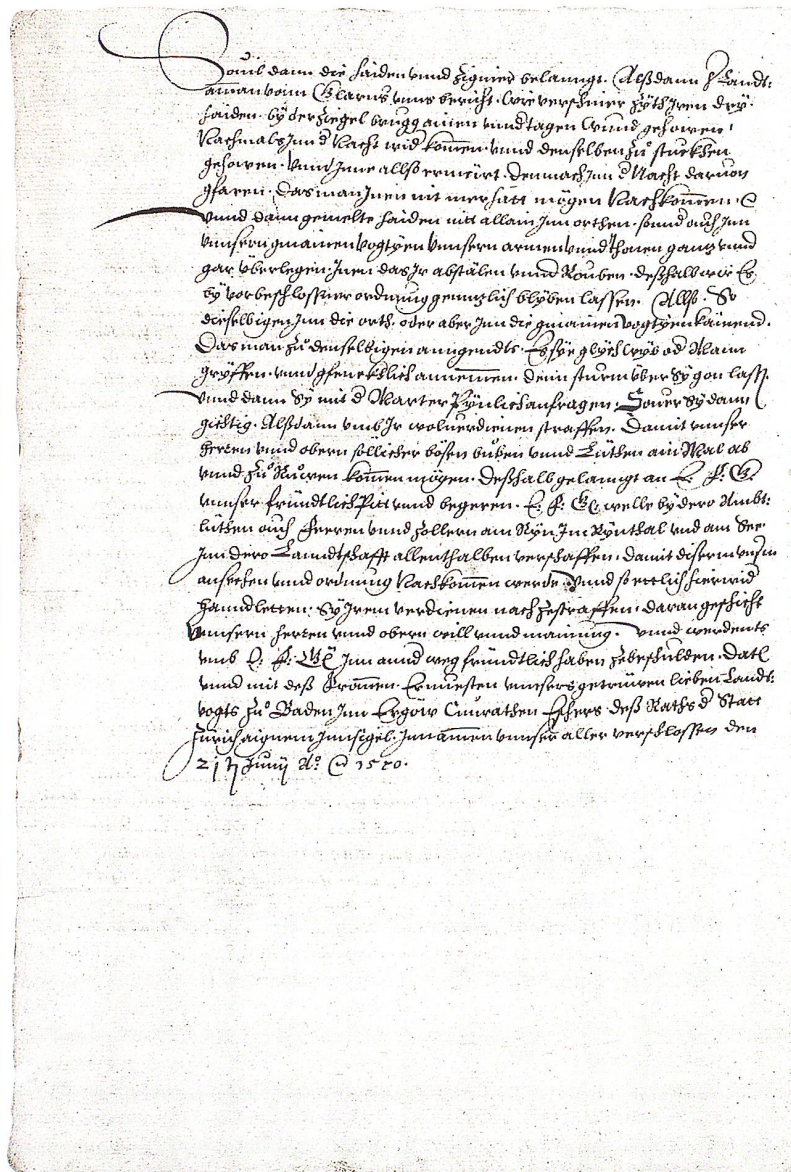 Souil dann die haiden vnnd Ziginer belanngt. Alßdann d Landt:
aman vonn Glarus vnns bericht. wie verschiner Zyth Jren dry
haiden. by der Ziegel brugg ainen vnndtagen wund gehowen.
Nachmals Jnn d Nacht wid komen. vnnd denselben Zu stuckhen
gehowen. vnnd Jnne allso ermürt. Demnach Jnn d Nacht daruon
gfaren. Das man Jnen nit mer hatt mögen Nachkomen.
vnnd dann gemelte haiden nitt allain Jnn orthen. sonnd ouch Jnn
vnnsern gmainen vogtyen vnnsern armen vnnd thonen ganz vnnd
gar überlegen. Jnen das Jr abstälen vnnd Rouben. deßhalb wir Es
by vorbeschlossner ordnung genntzlich blyben lassen. Allso. So
dieselbigen Jnn die orth. oder aber Jnn die gmainen vogtyen kämend.
Das man Zu denselbigen anngendts. Es sye glych wyb od Mann
gryffen. vnnd gfencklich annemmen. denn sturm über Sy gon lassen.
vnnd dann Sy mit d Marter Pynlich anfragen. Souer Sy dann
gichtig. Alßdann vmb Jr wolverdienen straffen. Damit vnnser
herren vnnd obern söllicher bösen buben vnnd Lüthen ain Mal ab
vnnd Zu Ruwen komen mögen. Deßhalb gelanngt an E. F. G.
vnnser fründtlich Pitt vnnd begeren. E. F. G. welle by dero Ambt:
lüthen ouch Feeren vnnd Zollern am Ryn Jm Rynthal vnd am See
Jnn dero Lanndtschafft allenthalben verschaffen. damit disem vnserm
ansechen vnnd ordnung Nachkomen werde. vnnd so ettlich hierwid
hanndletten. Sy Jrem verdienen nach Zestraffen. daran geschicht
vnnsern herren vnnd obern will vnnd mainung. vnnd werdents
vmb E. F. G. Jnn annd weg fründtlich haben Zebeschulden. Datum
vnnd mit deß Fromen. Ernuesten vnnsers getrüwen lieben Landt:
vogts Zu Baden Jnn Ergöw Cunrathen Eschers. deß Raths d Statt
Zürich aignem Jnnsigel. Jnn namen vnnser aller verschlossen den
21 Junij Ao 1580.